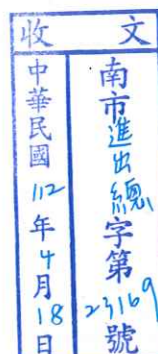 收文
南市進出總字第23169號
中華民國112年4月18日